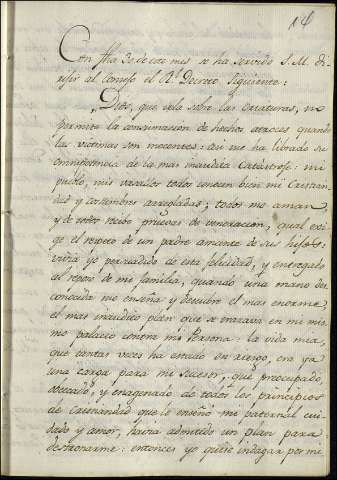 14
Con fha 30 de este mes se ha servido S. M. di-
rigir al Consejo el Rl. Decreto siguiente:
"Dios, que vela sobre las criaturas, no
permite la consumacion de hechos atroces quando
las victimas son inocentes: asi me ha librado su
omnipotencia de la mas inaudita catastrofe: mi
pueblo, mis vasallos todos conocen bien mi Cristian-
dad y costumbres arregladas; todos me aman,
y de todos recibo pruevas de veneracion, qual exi-
ge el respeto de un padre amante de sus hijos:
vivia yo persuadido de esta felicidad, y entregado
al reposo de mi familia, quando una mano des-
conocida me enseña y descubre el mas enorme,
el mas inaudito plan que se trazava en mi mis-
mo palacio contra mi Persona: la vida mia,
que tantas veces ha estado en riesgo, era ya
una carga para mi sucesor, que preocupado,
obcecado, y enagenado de todos los principios
de Cristiandad que le enseñó mi paternal cui-
dado y amor, havia admitido un plan para
destronarme: entonces yo quise indagar por mi